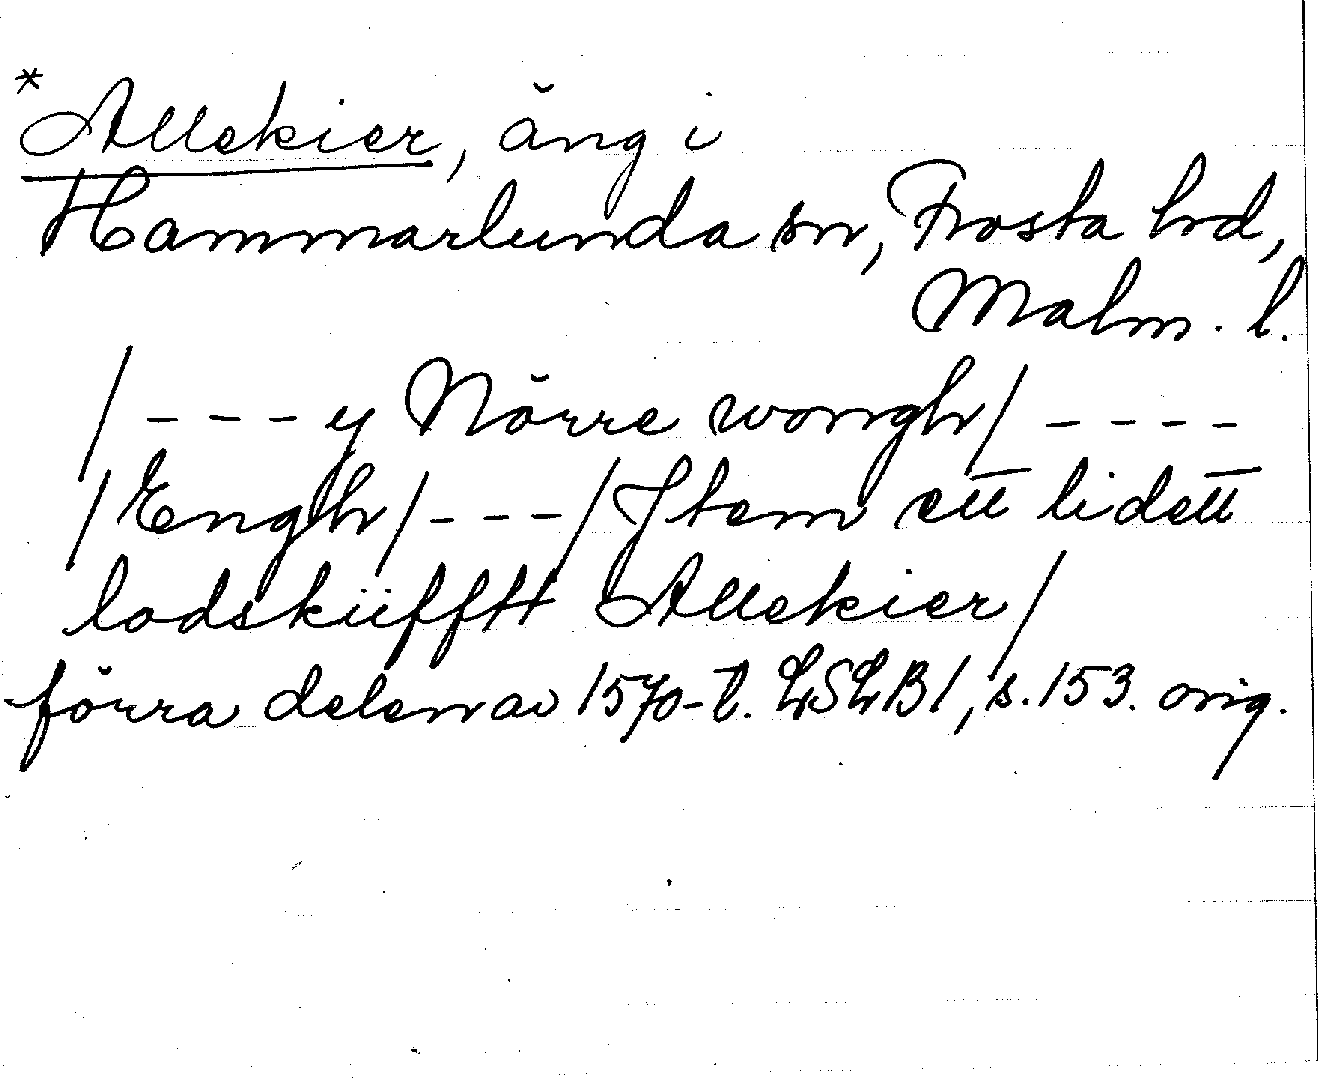 *Allekier, äng i
Hammarlunda sn, Frosta hd,
Malm. l.
/ - - - y Nörre wongh / - - - -
/ Engh / - - - / Jtem ett lidett
lodsküfftt Allekier /
förra delen av 1570-t. LSLB 1, s. 153. orig.